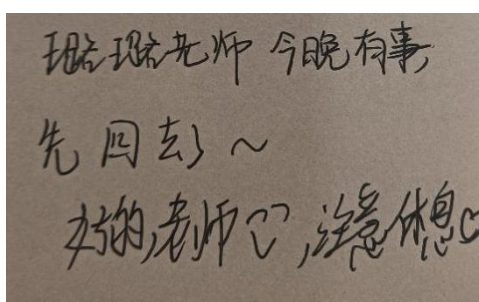 璐璐老师 今晚有事,
先回去了~
好的,老师♡,注意休息♡